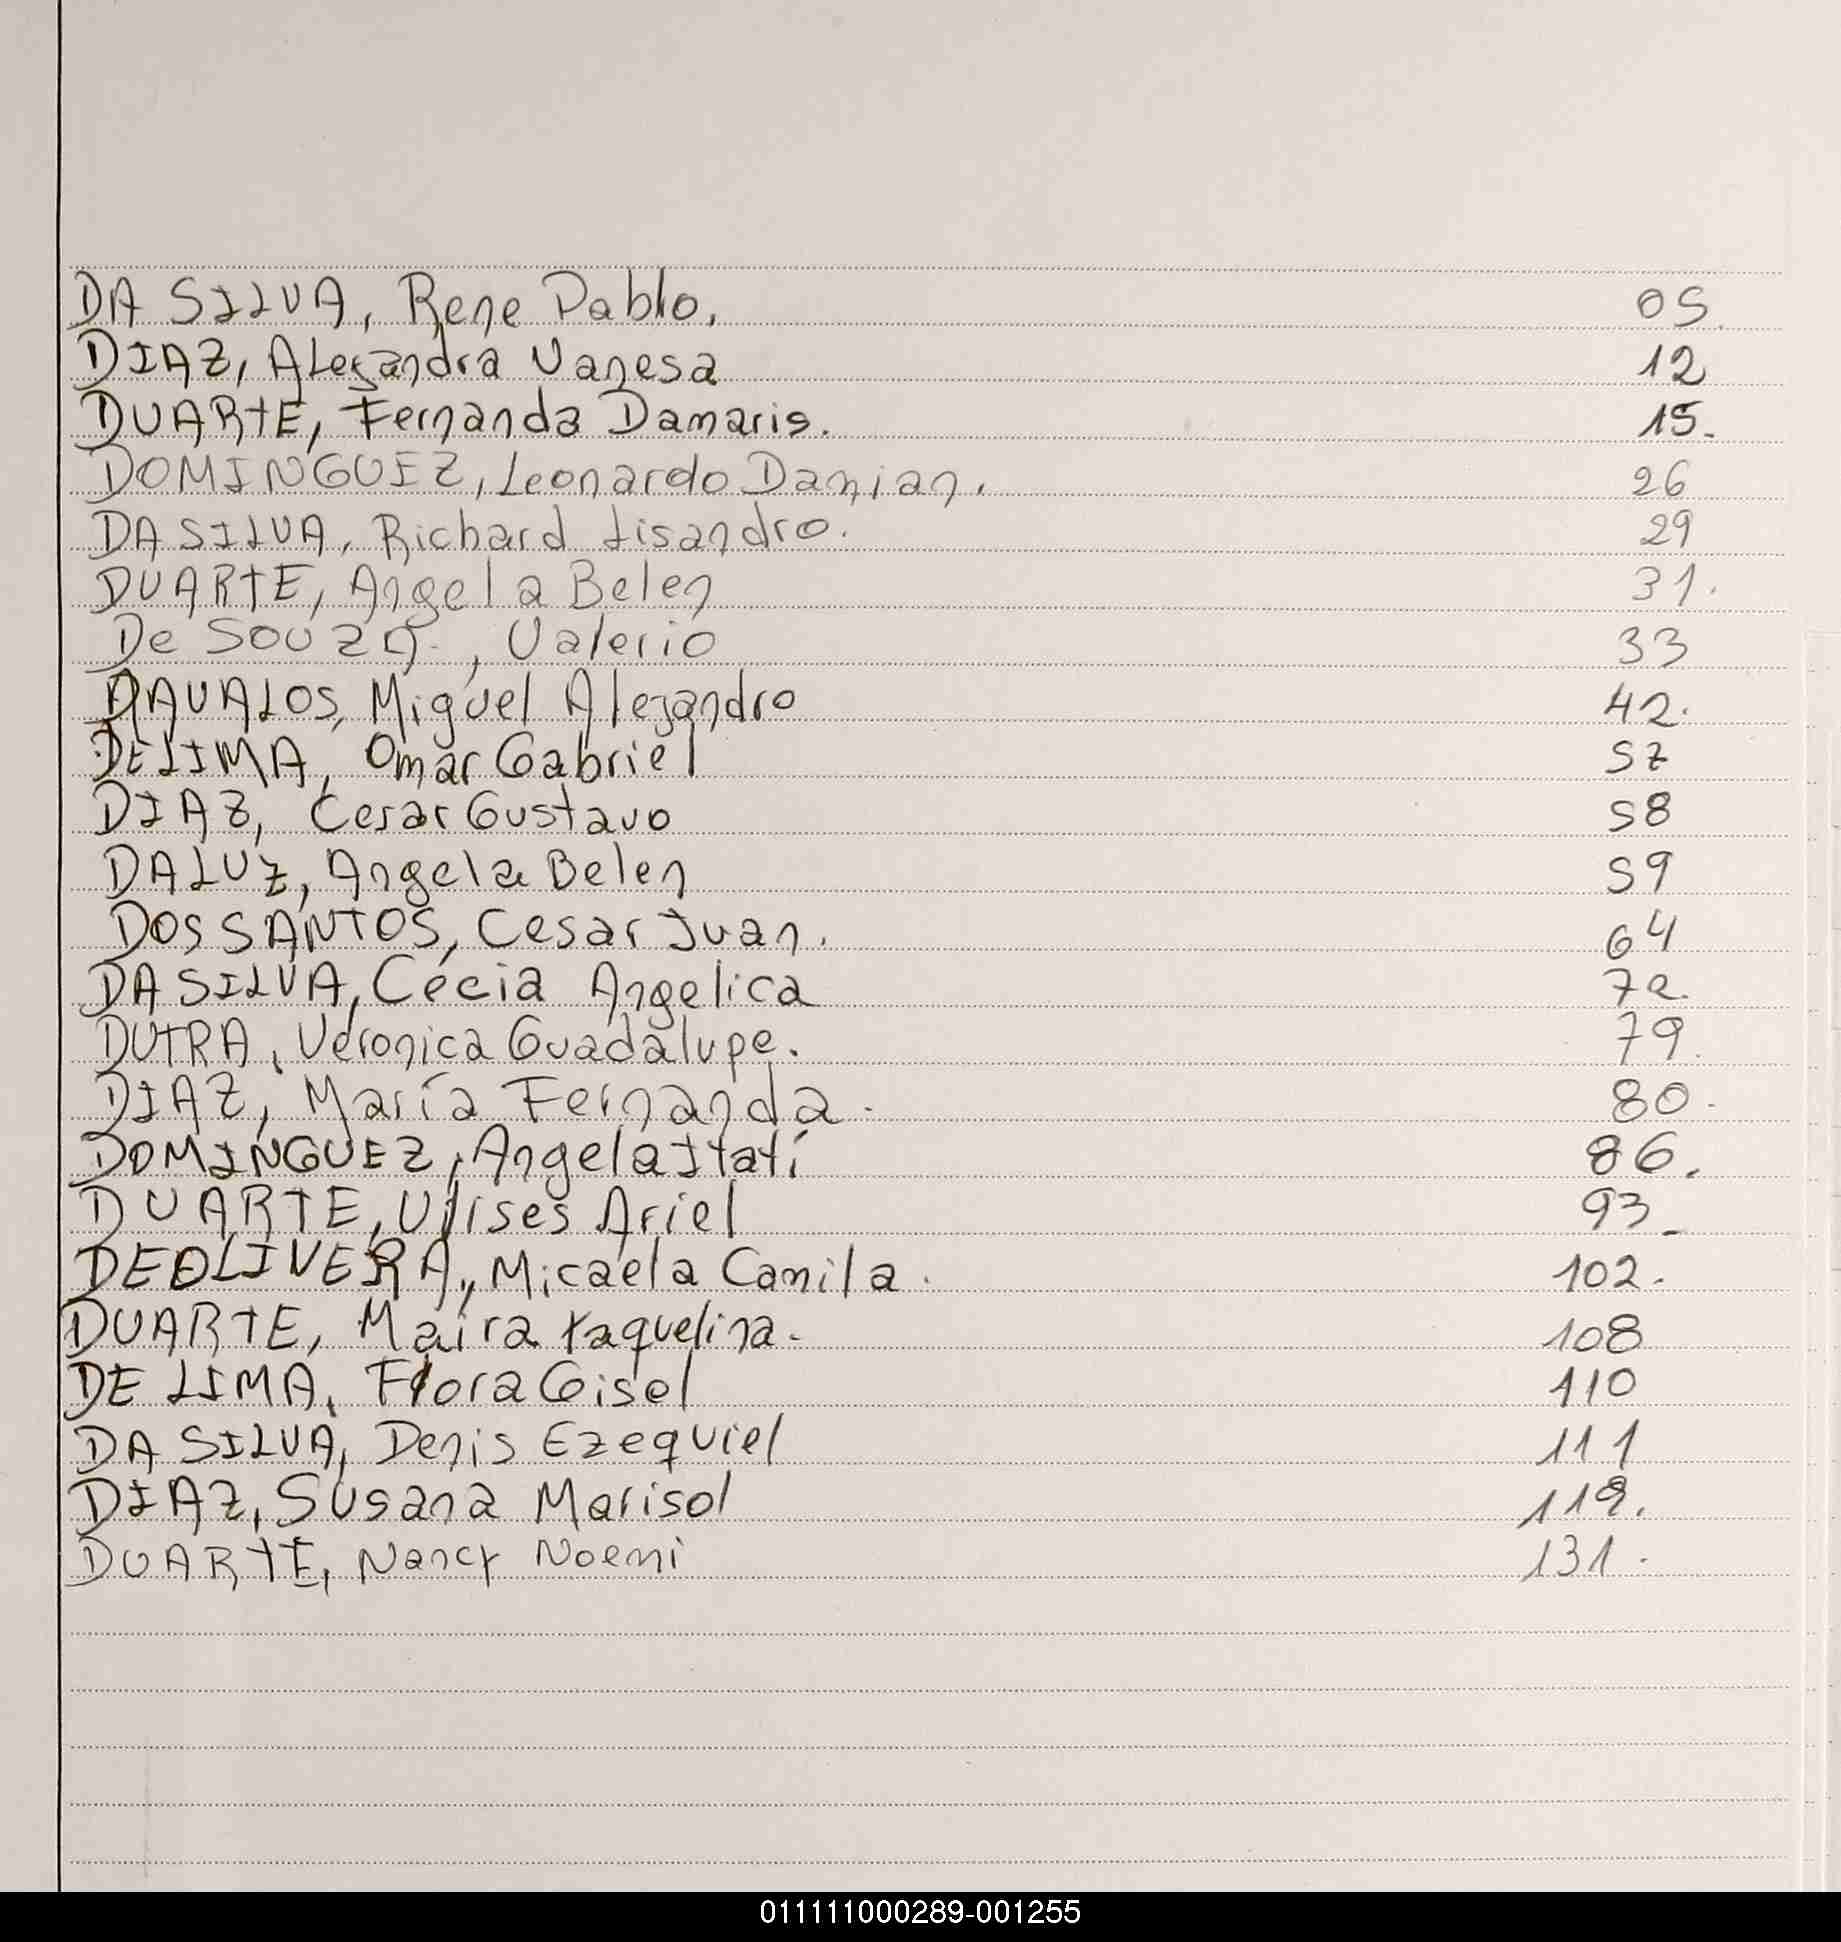 DA SILVA, Rene Pablo. 05.
DIAZ, Alejandra Vanesa 12
DUARTE, Fernanda Damaris. 15.
DOMINGUEZ, Leonardo Damian. 26
DA SILVA, Richard Lisandro. 29
DUARTE, Angela Belen 31.
De SOUZA., Valerio 33
DAVALOS, Miguel Alejandro 42.
DELIMA, Omar Gabriel 57
DIAZ, Cesar Gustavo 58
DALUZ, Angela Belen 59
DOS SANTOS, Cesar Juan. 64
DA SILVA, Cecia Angelica 72.
DUTRA, Veronica Guadalupe. 79.
DIAZ, María Fernanda. 80.
DOMINGUEZ, Angela Itatí 86.
DUARTE, Ulises Ariel 93_
DEOLIVERA, Micaela Camila. 102.
DUARTE, Maira Yaquelina. 108
DE LIMA, Flora Gisel 110
DA SILVA, Denis Ezequiel 111
DIAZ, Susana Marisol
DUARTE, Nancy Noemi 131.
011111000289-001255